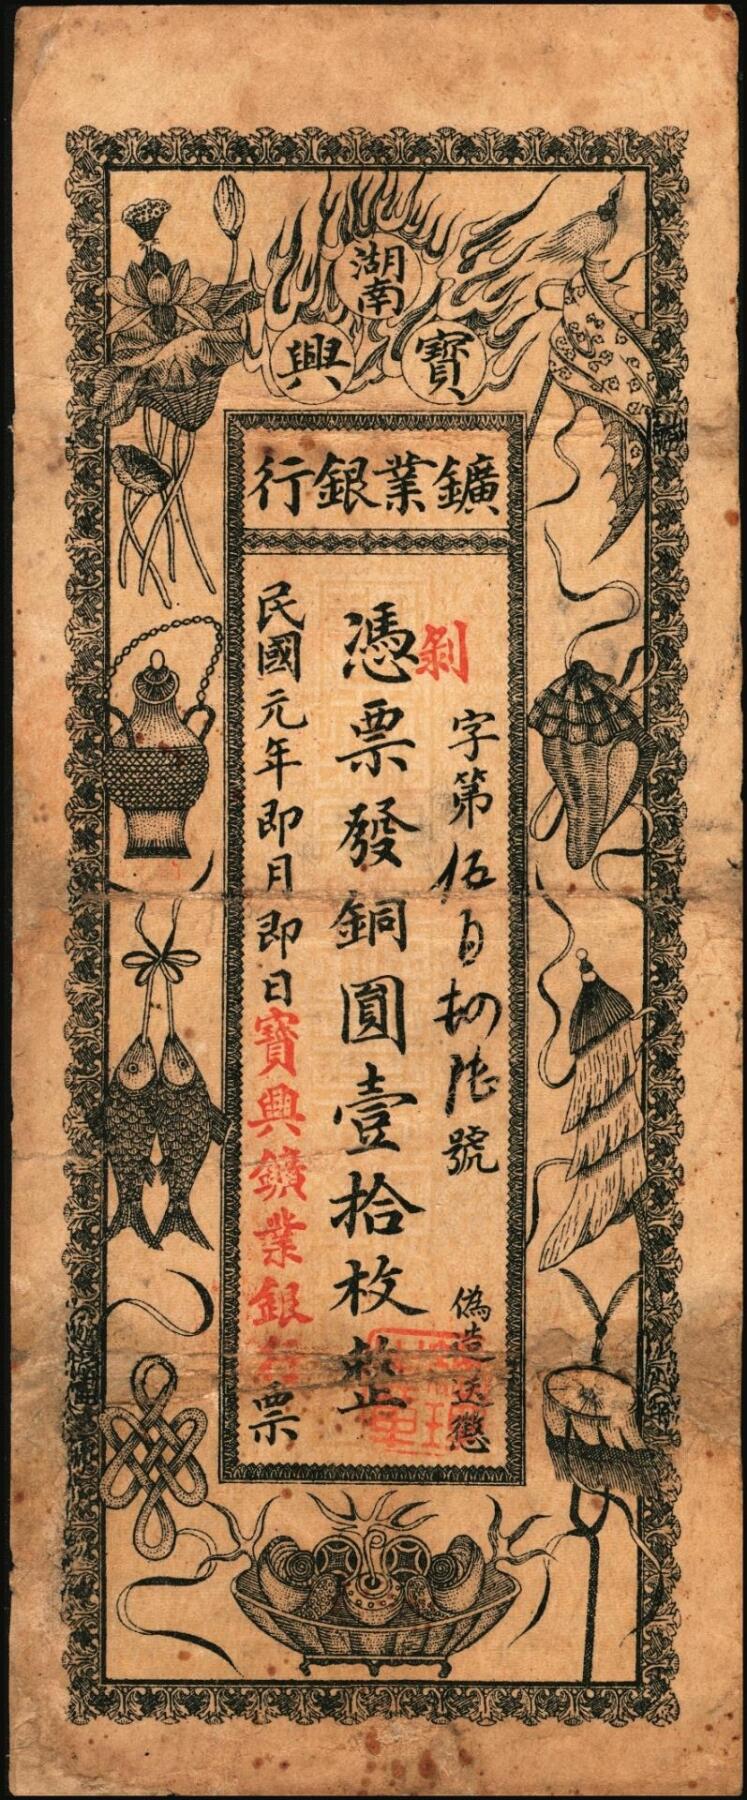 湖南
寶興
鑛業銀行
剝字第伍百捌拾號
憑票發銅圓壹拾枚整
民國元年即月即日寶興鑛業銀行票
偽造送懲